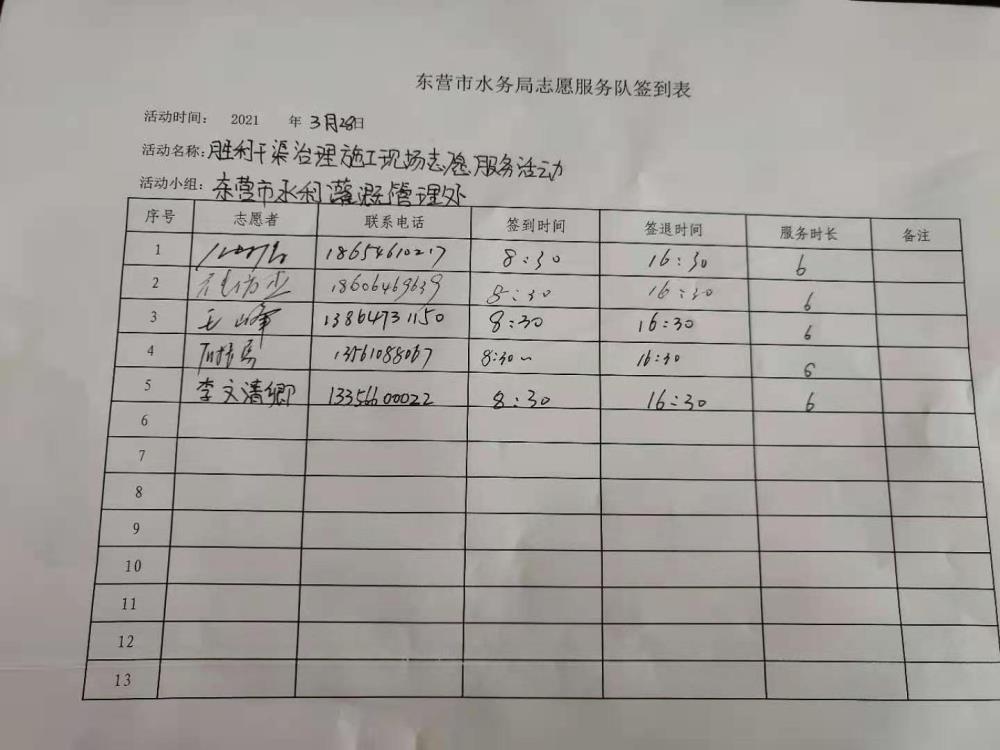 东营市水务局志愿服务队签到表
活动时间： 2021 年 3月28日
活动名称：胜利干渠治理施工现场志愿服务活动
活动小组：东营市水利灌溉管理处
序号 志愿者 联系电话 签到时间 签退时间 服务时长 备注
1 18654610217 8:30 16:30 6
2 18606469639 8:30 16:30 6
3 王峰 13864731150 8:30 16:30 6
4 13561088067 8:30~ 16:30 6
5 李文清卿 13356600022 8:30 16:30 6
6
7
8
9
10
11
12
13